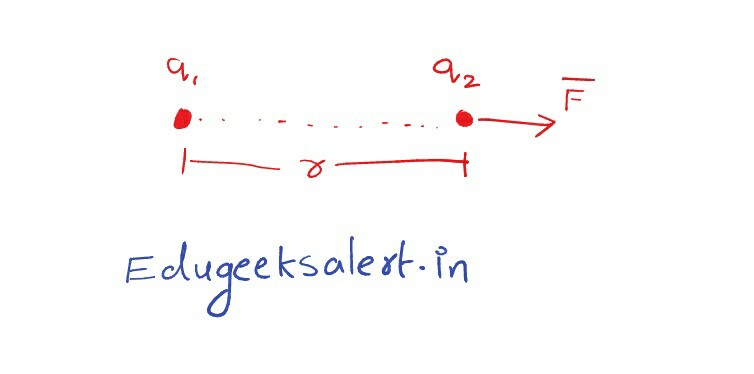 q₁ q₂ F
r
Edugeeksalert.in